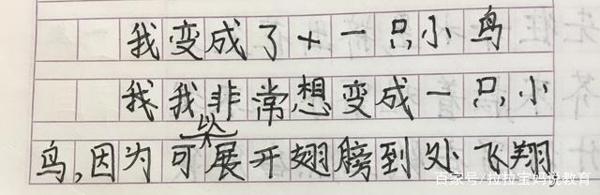 我变成了十一只小鸟
我我非常想变成一只小
鸟,因为可以展开翅膀到处飞翔
百家号/拉拉宝妈说教育